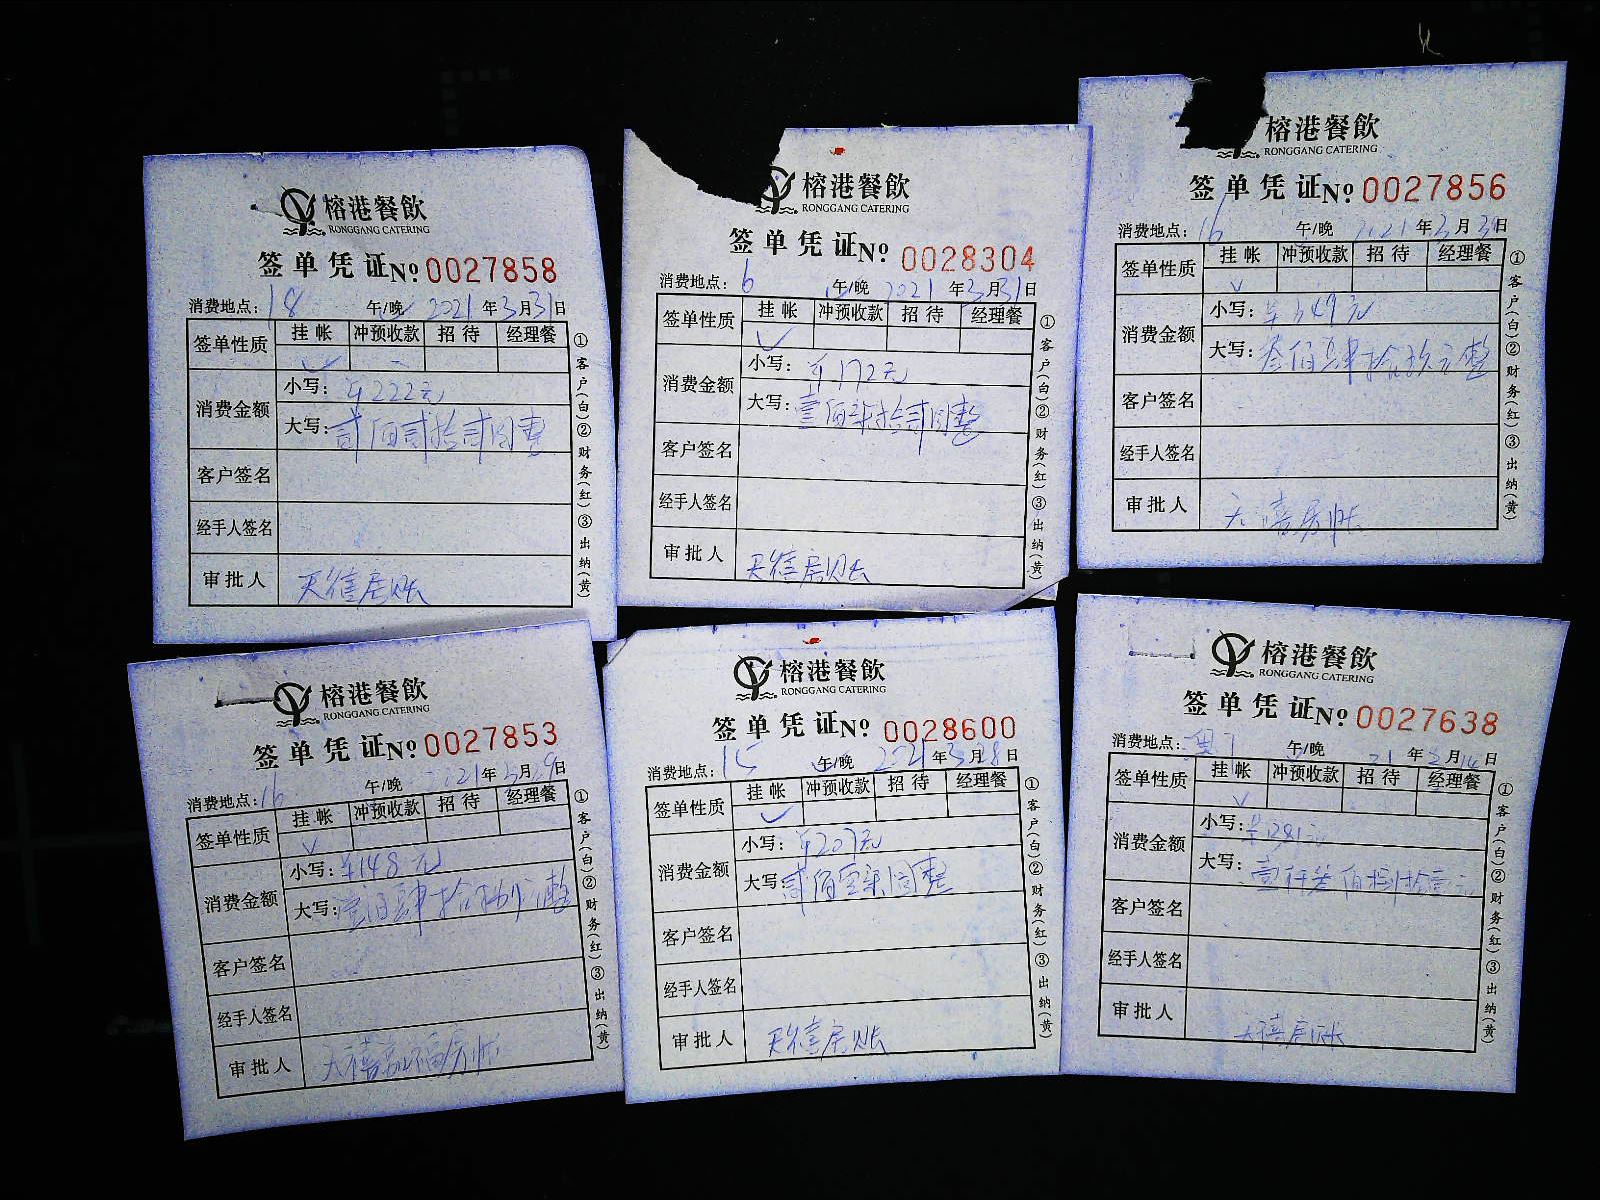 榕港餐飲
RONGGANG CATERING
签单凭证№ 0027858
消费地点: 18 午/晚 2021年3月31日
签单性质 挂帐 冲预收款 招待 经理餐
消费金额 小写: ¥222元
大写: 贰佰贰拾贰圆整
客户签名
经手人签名
审批人
①客户(白)②财务(红)③出纳(黄)
榕港餐飲
RONGGANG CATERING
签单凭证№ 0028304
消费地点: 6 午/晚 2021年3月31日
签单性质 挂帐 冲预收款 招待 经理餐
消费金额 小写: ¥172元
大写: 壹佰柒拾贰圆整
客户签名
经手人签名
审批人
①客户(白)②财务(红)③出纳(黄)
榕港餐飲
RONGGANG CATERING
签单凭证№ 0027856
消费地点: 16 午/晚 2021年3月日
签单性质 挂帐 冲预收款 招待 经理餐
消费金额 小写: ¥349元
大写: 叁佰肆拾玖元整
客户签名
经手人签名
审批人
①客户(白)②财务(红)③出纳(黄)
榕港餐飲
RONGGANG CATERING
签单凭证№ 0027853
消费地点: 16 午/晚 年月日
签单性质 挂帐 冲预收款 招待 经理餐
消费金额 小写: ¥148元
大写: 壹佰肆拾捌元整
客户签名
经手人签名
审批人
①客户(白)②财务(红)③出纳(黄)
榕港餐飲
RONGGANG CATERING
签单凭证№ 0028600
消费地点: 15 午/晚 2021年3月日
签单性质 挂帐 冲预收款 招待 经理餐
消费金额 小写: ¥207元
大写: 贰佰零柒圆整
客户签名
经手人签名
审批人
①客户(白)②财务(红)③出纳(黄)
榕港餐飲
RONGGANG CATERING
签单凭证№ 0027638
消费地点: 午/晚 21年月14日
签单性质 挂帐 冲预收款 招待 经理餐
消费金额 小写:
大写:
客户签名
经手人签名
审批人
①客户(白)②财务(红)③出纳(黄)